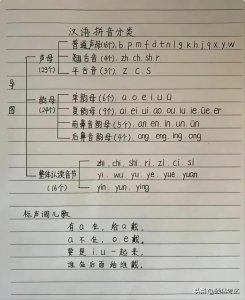 汉语拼音分类
导图
声母(23个)
普通声母(16个). b. p. m. f. d. t. n. l. g. k. h. j. q. x. y. w
翘舌音(4个). zh. ch. sh. r
平舌音(3个). z. c. s
韵母(24个)
单韵母(6个). a. o. e. i. u. ü
复韵母(9个). ai. ei. ui. ao. ou. iu. ie. üe. er
前鼻音韵母(5个). an. en. in. un. ün
后鼻音韵母(4个). ang. eng. ing. ong
整体认读音节(16个)
zhi. chi. shi. ri. zi. ci. si
yi. wu. yu. ye. yue. yuan
yin. yun. ying
标声调儿歌
有a在, 给a戴,
a不在, o e戴,
要是iu一起来,
谁在后面给谁戴.